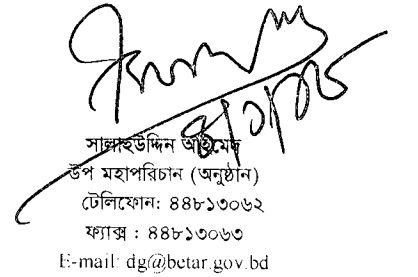 সালাহউদ্দিন আহমেদ
উপ মহাপরিচান (অনুষ্ঠান)
টেলিফোন: ৪৪৮১৩০৬২
ফ্যাক্স : ৪৪৮১৩০৬৩
E-mail: dg@betar.gov.bd